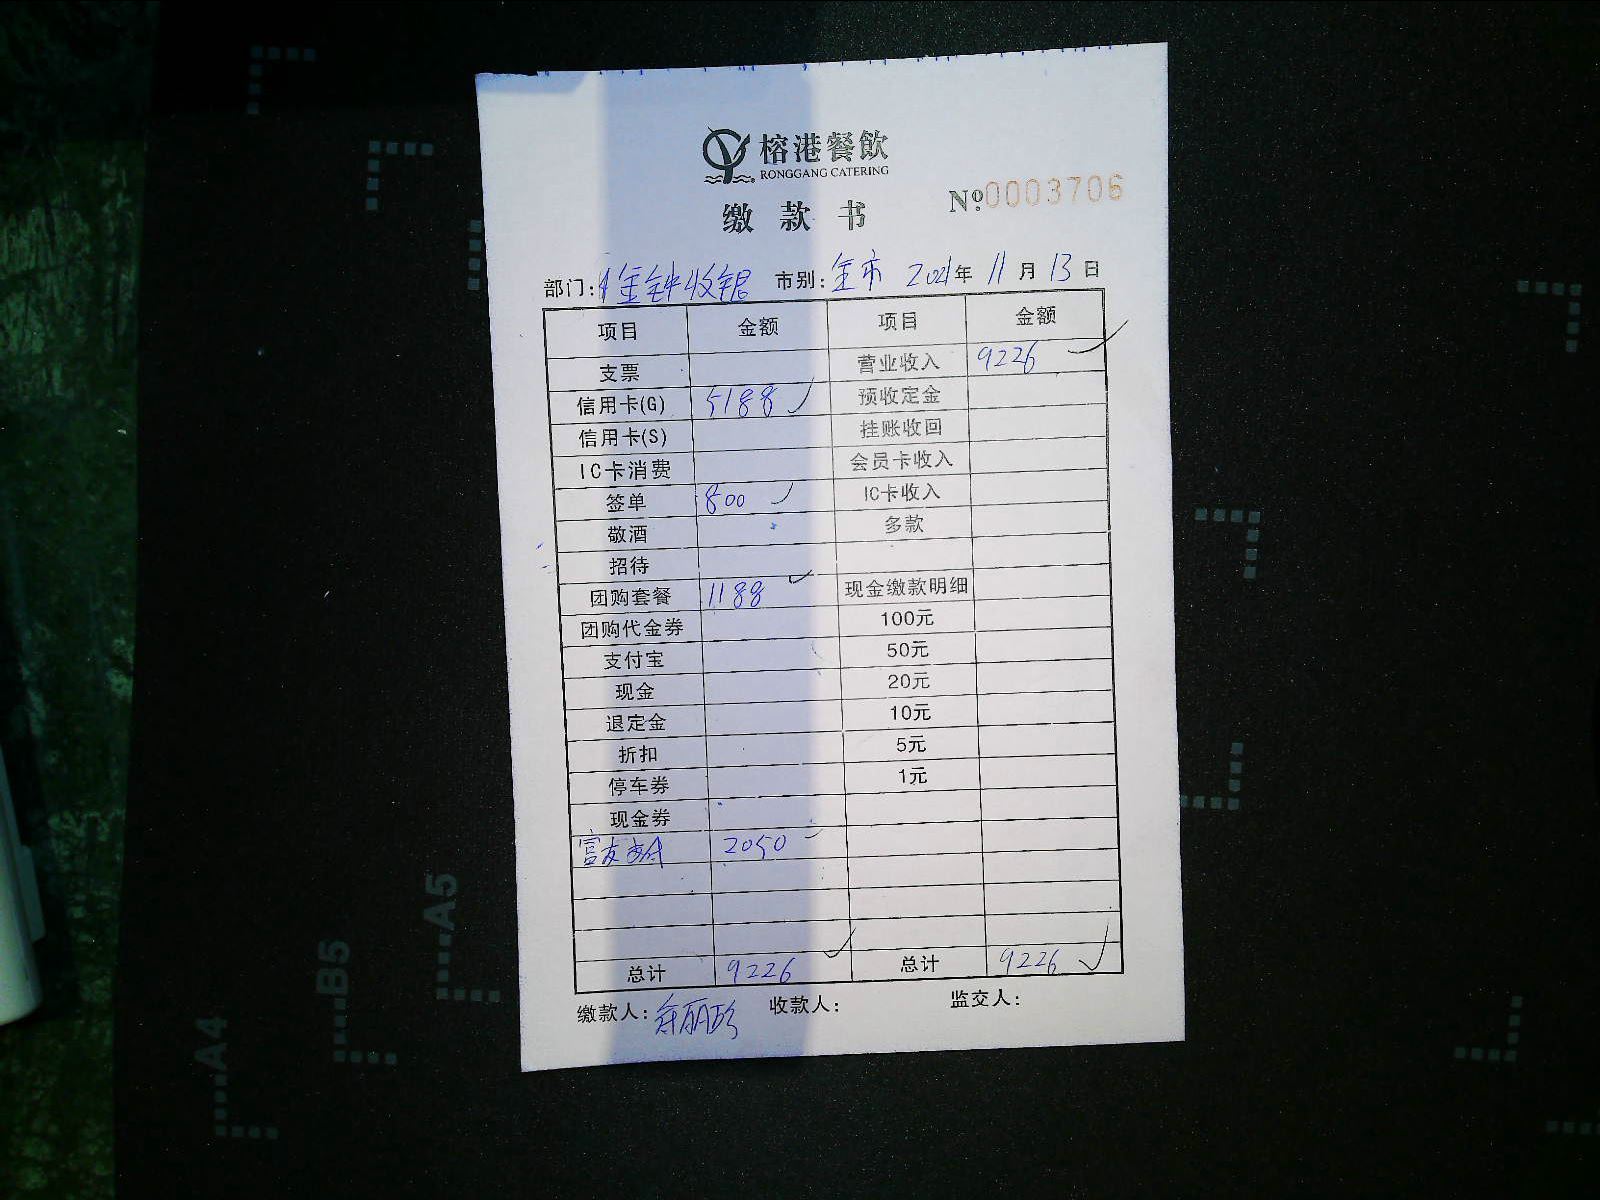 榕港餐飲
RONGGANG CATERING
缴款书
Nº0003706
部门: 金钟收银 市别: 全市 2021年 11月 13日
项目 金额 项目 金额
支票 营业收入 9226
信用卡(G) 5188 预收定金
信用卡(S) 挂账收回
IC卡消费 会员卡收入
签单 800 IC卡收入
敬酒 多款
招待
团购套餐 1188 现金缴款明细
团购代金券 100元
支付宝 50元
现金 20元
退定金 10元
折扣 5元
停车券 1元
现金券
富友支付 2050
总计 9226 总计 9226
缴款人: 收款人: 监交人:
A4
B5
A5